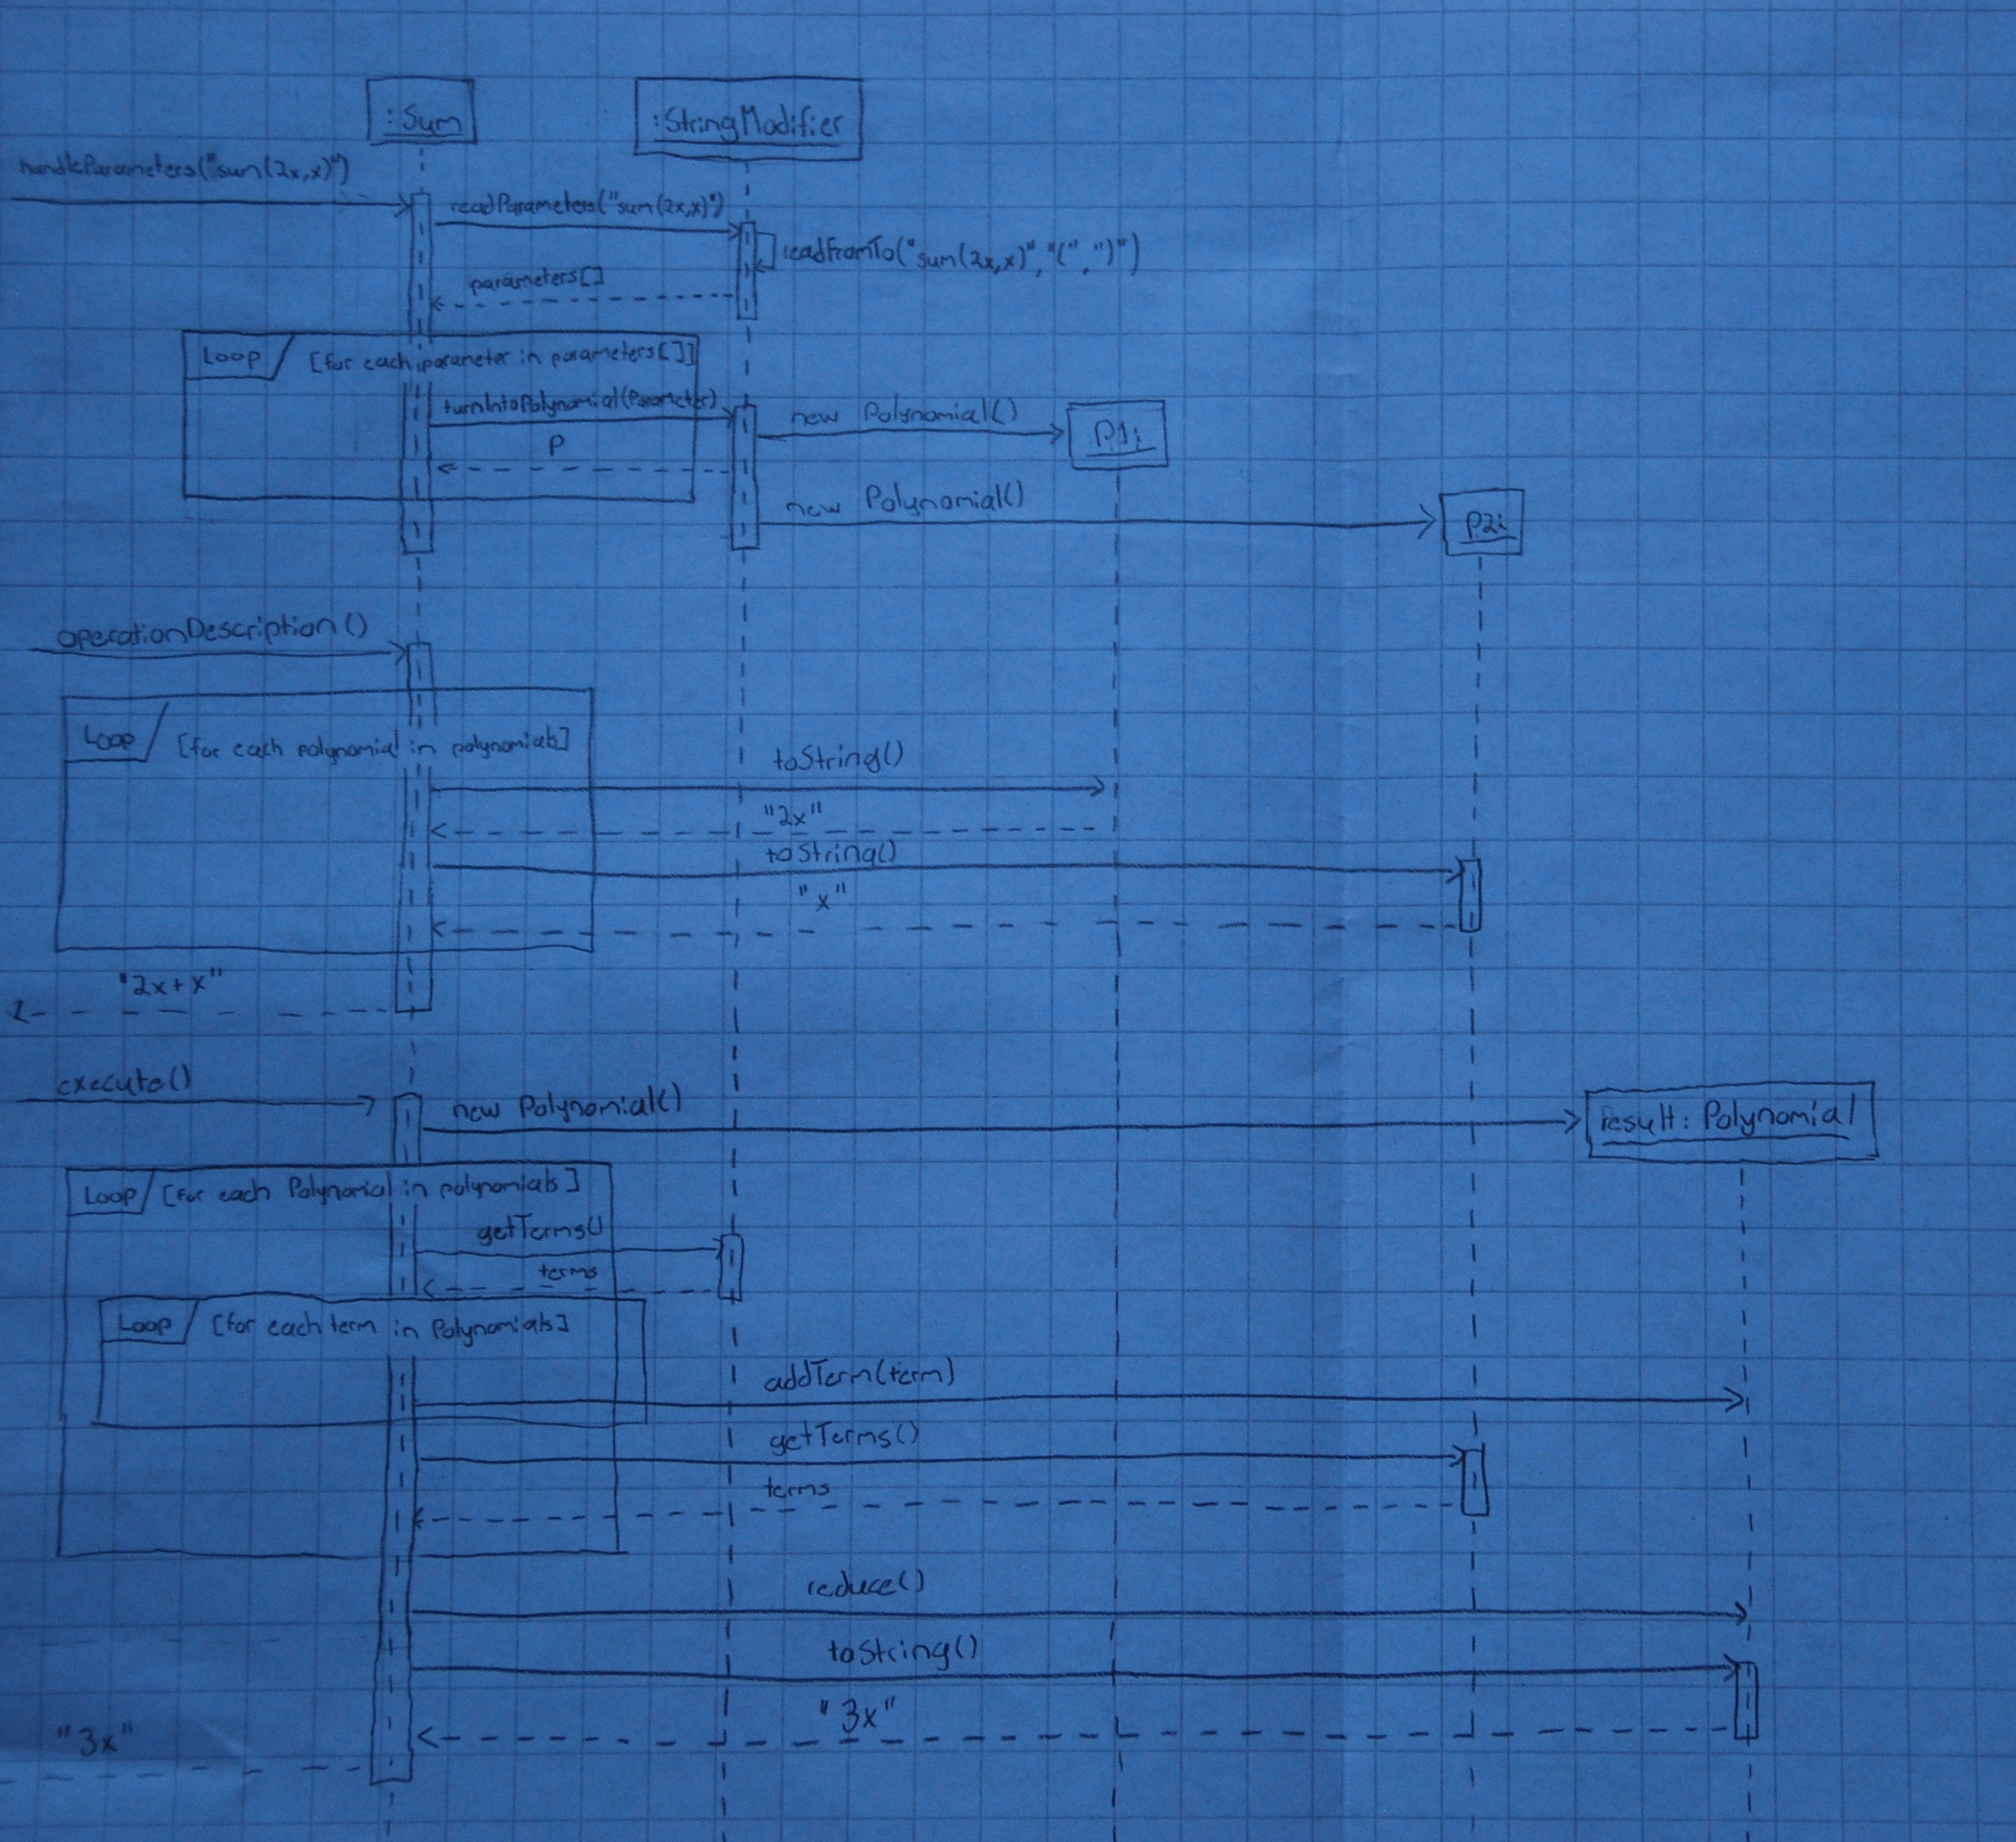 :Sum
:StringModifier
handleParameters("sum(2x,x)")
readParameters("sum(2x,x)")
readFromTo("sum(2x,x)","(",")")
parameters[]
Loop
[for each parameter in parameters[]]
turnIntoPolynomial(Parameter)
new Polynomial()
P1:
P
new Polynomial()
P2:
operationDescription()
Loop
[for each polynomial in polynomials]
toString()
"2x"
toString()
"x"
"2x+x"
execute()
new Polynomial()
result: Polynomial
Loop
[for each Polynomial in polynomials]
getTerms()
terms
Loop
[for each term in Polynomials]
addTerm(term)
getTerms()
terms
reduce()
toString()
"3x"
"3x"